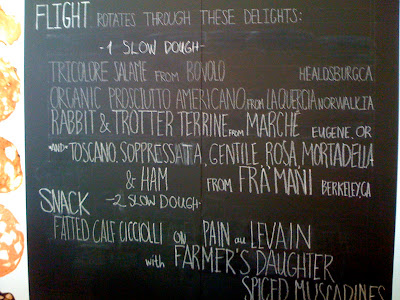 FLIGHT ROTATES THROUGH THESE DELIGHTS:
-1 SLOW DOUGH-
TRICOLORE SALAME FROM BOVOLO HEALDSBURG,CA
ORGANIC PROSCIUTTO AMERICANO FROM LA QUERCIA NORWALK,IA
RABBIT & TROTTER TERRINE FROM MARCHÉ EUGENE, OR
*AND* TOSCANO, SOPPRESSATTA, GENTILE, ROSA, MORTADELLA
& HAM FROM FRA'MANI BERKELEY,CA
SNACK -2 SLOW DOUGH-
FATTED CALF CICCIOLLI ON PAIN au LEVAIN
with FARMER'S DAUGHTER
SPICED MUSCADINES